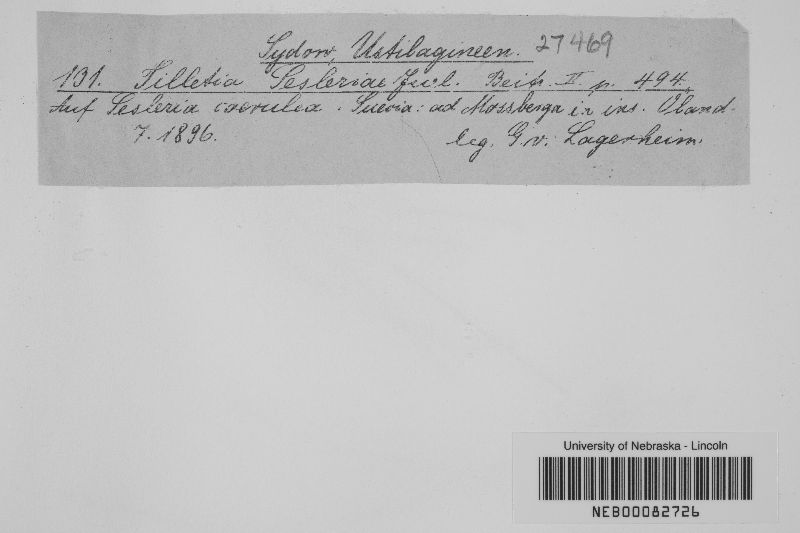 Sydow, Ustilagineen. 27469
131. Tilletia Sesleriae Juel. Beih. II p. 494.
Auf Sesleria coerulea. Suecia: ad Mossberga in ins. Oland.
7. 1896. leg. G. v. Lagerheim.
University of Nebraska - Lincoln
NEB00082726